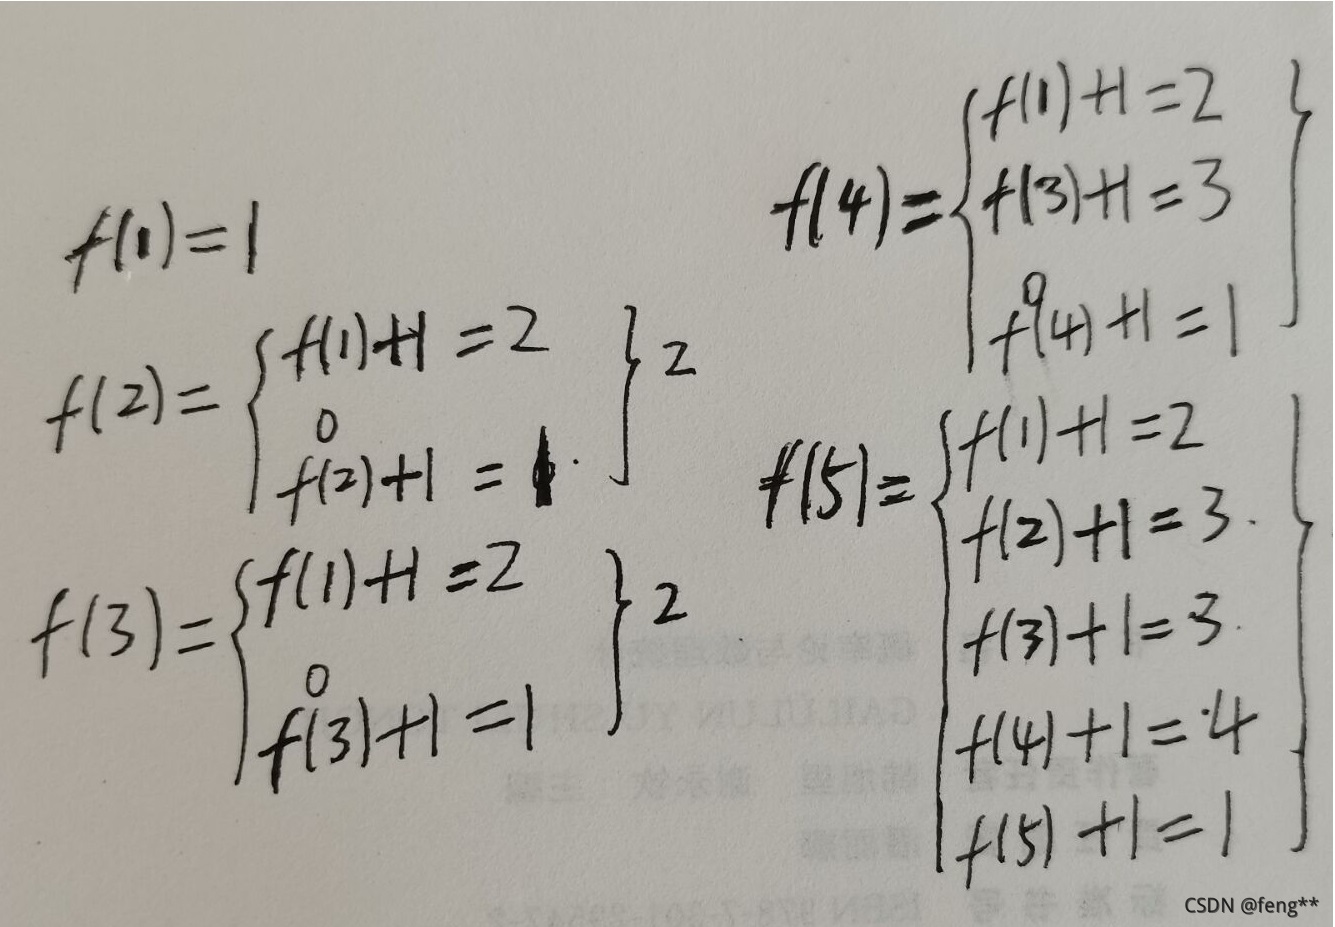 f(1)=1
f(2)=
f(1)+1=2
0
f(2)+1=1.
2
f(3)=
f(1)+1=2
0
f(3)+1=1
2
f(4)=
f(1)+1=2
f(3)+1=3
0
f(4)+1=1
f(5)=
f(1)+1=2
f(2)+1=3.
f(3)+1=3.
f(4)+1=4
f(5)+1=1
CSDN @feng**